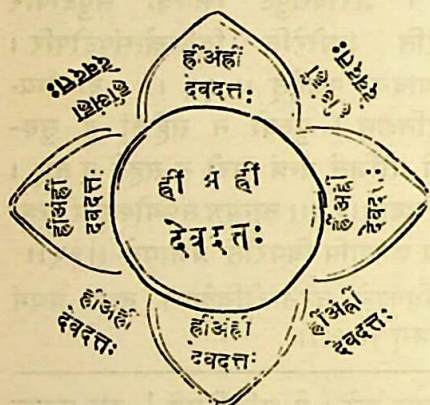 ह्रीँअंह्रीँ
देवदत्तः
ह्रींअंह्रीं
देवदत्तः
ह्रींअंह्रीं
देवदत्तः
ह्रींअंह्रीं
देवदत्तः
ह्रीं अं ह्रीं
देवदत्तः
ह्रींअंह्रीं
देवदत्तः
ह्रींअंह्रीं
देवदत्तः
ह्रींअंह्रीं
देवदत्तः
ह्रींअंह्रीं
देवदत्तः